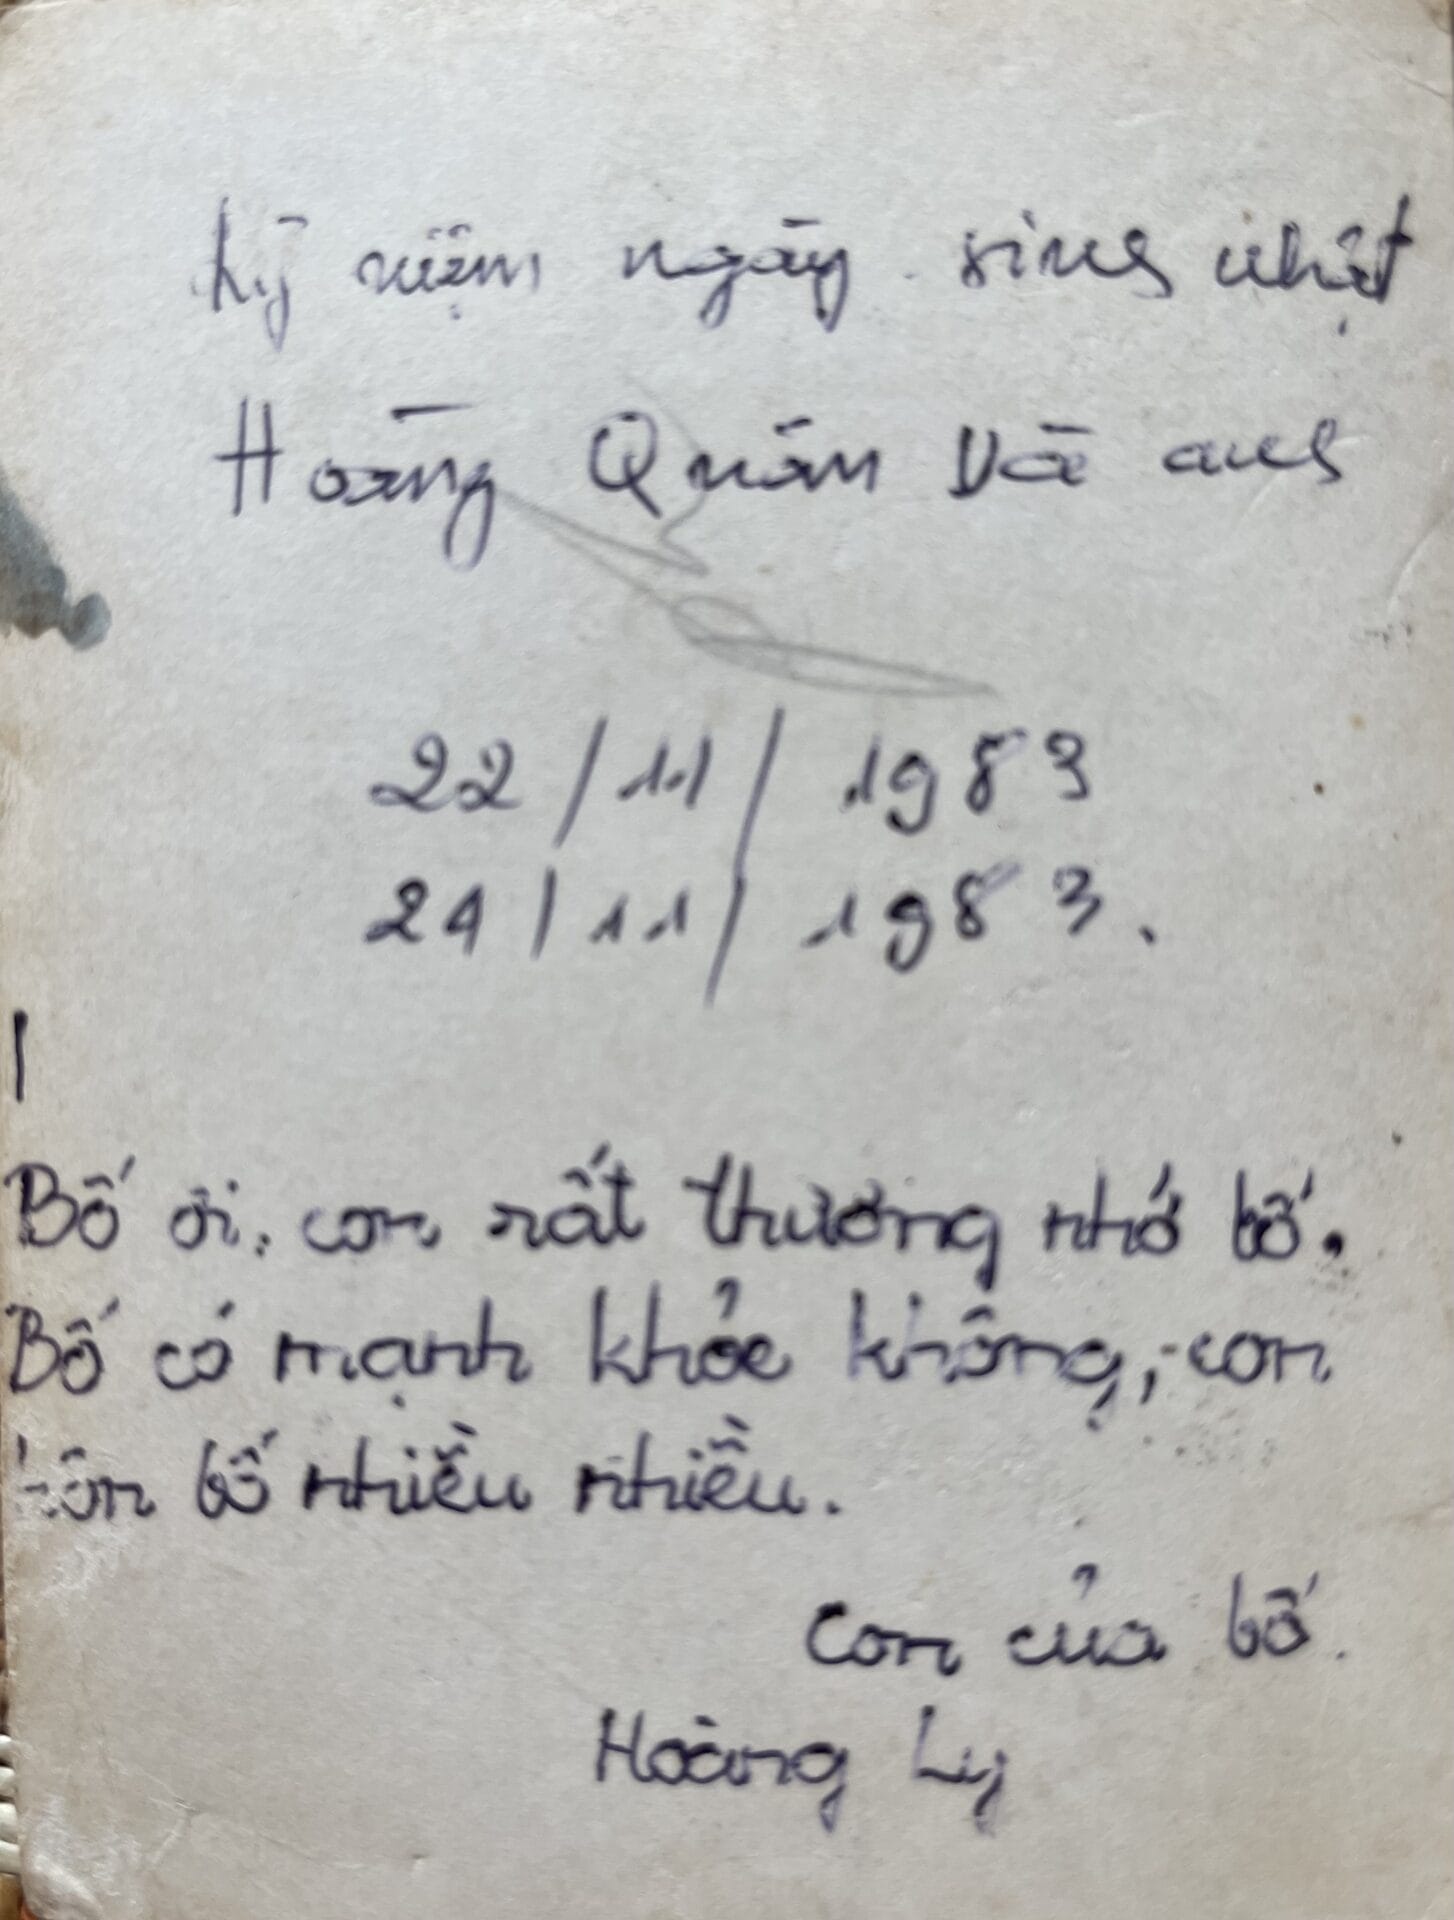 kỷ niệm ngày sinh nhật
Hoàng Quân Và anh
22/11/1983
24/11/1983.
Bố ơi, con rất thương nhớ bố.
Bố có mạnh khỏe không, con
hôn bố nhiều nhiều.
Con của bố.
Hoàng Ly